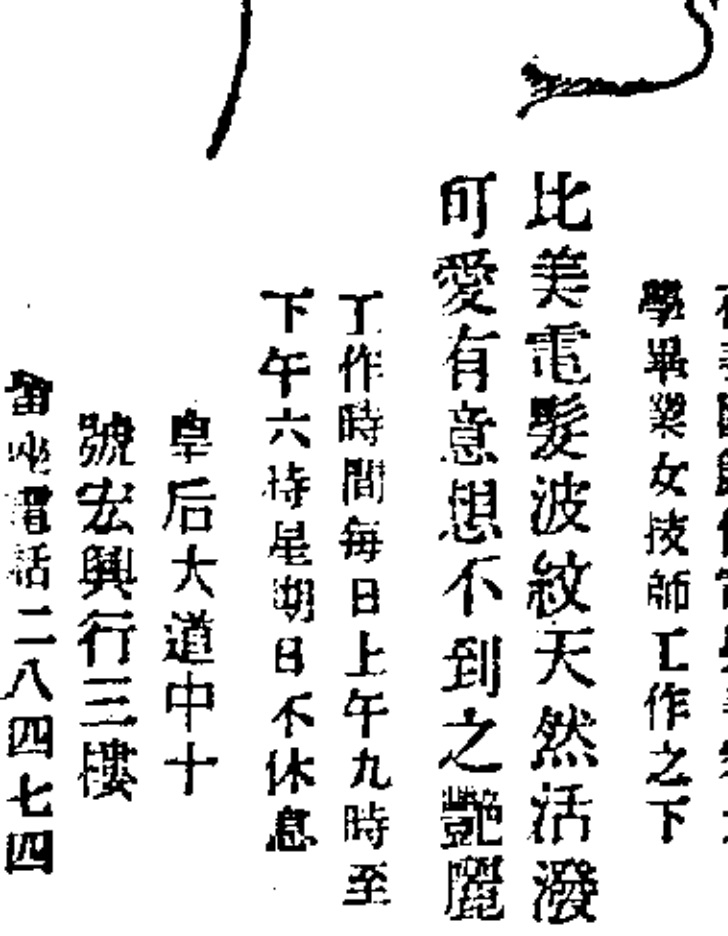 學畢業女技師工作之下
比美電髮波紋天然活潑
可愛有意想不到之艷麗
工作時間每日上午九時至
下午六時星期日不休息
皇后大道中十
號宏興行三樓
留座電話二八四七四